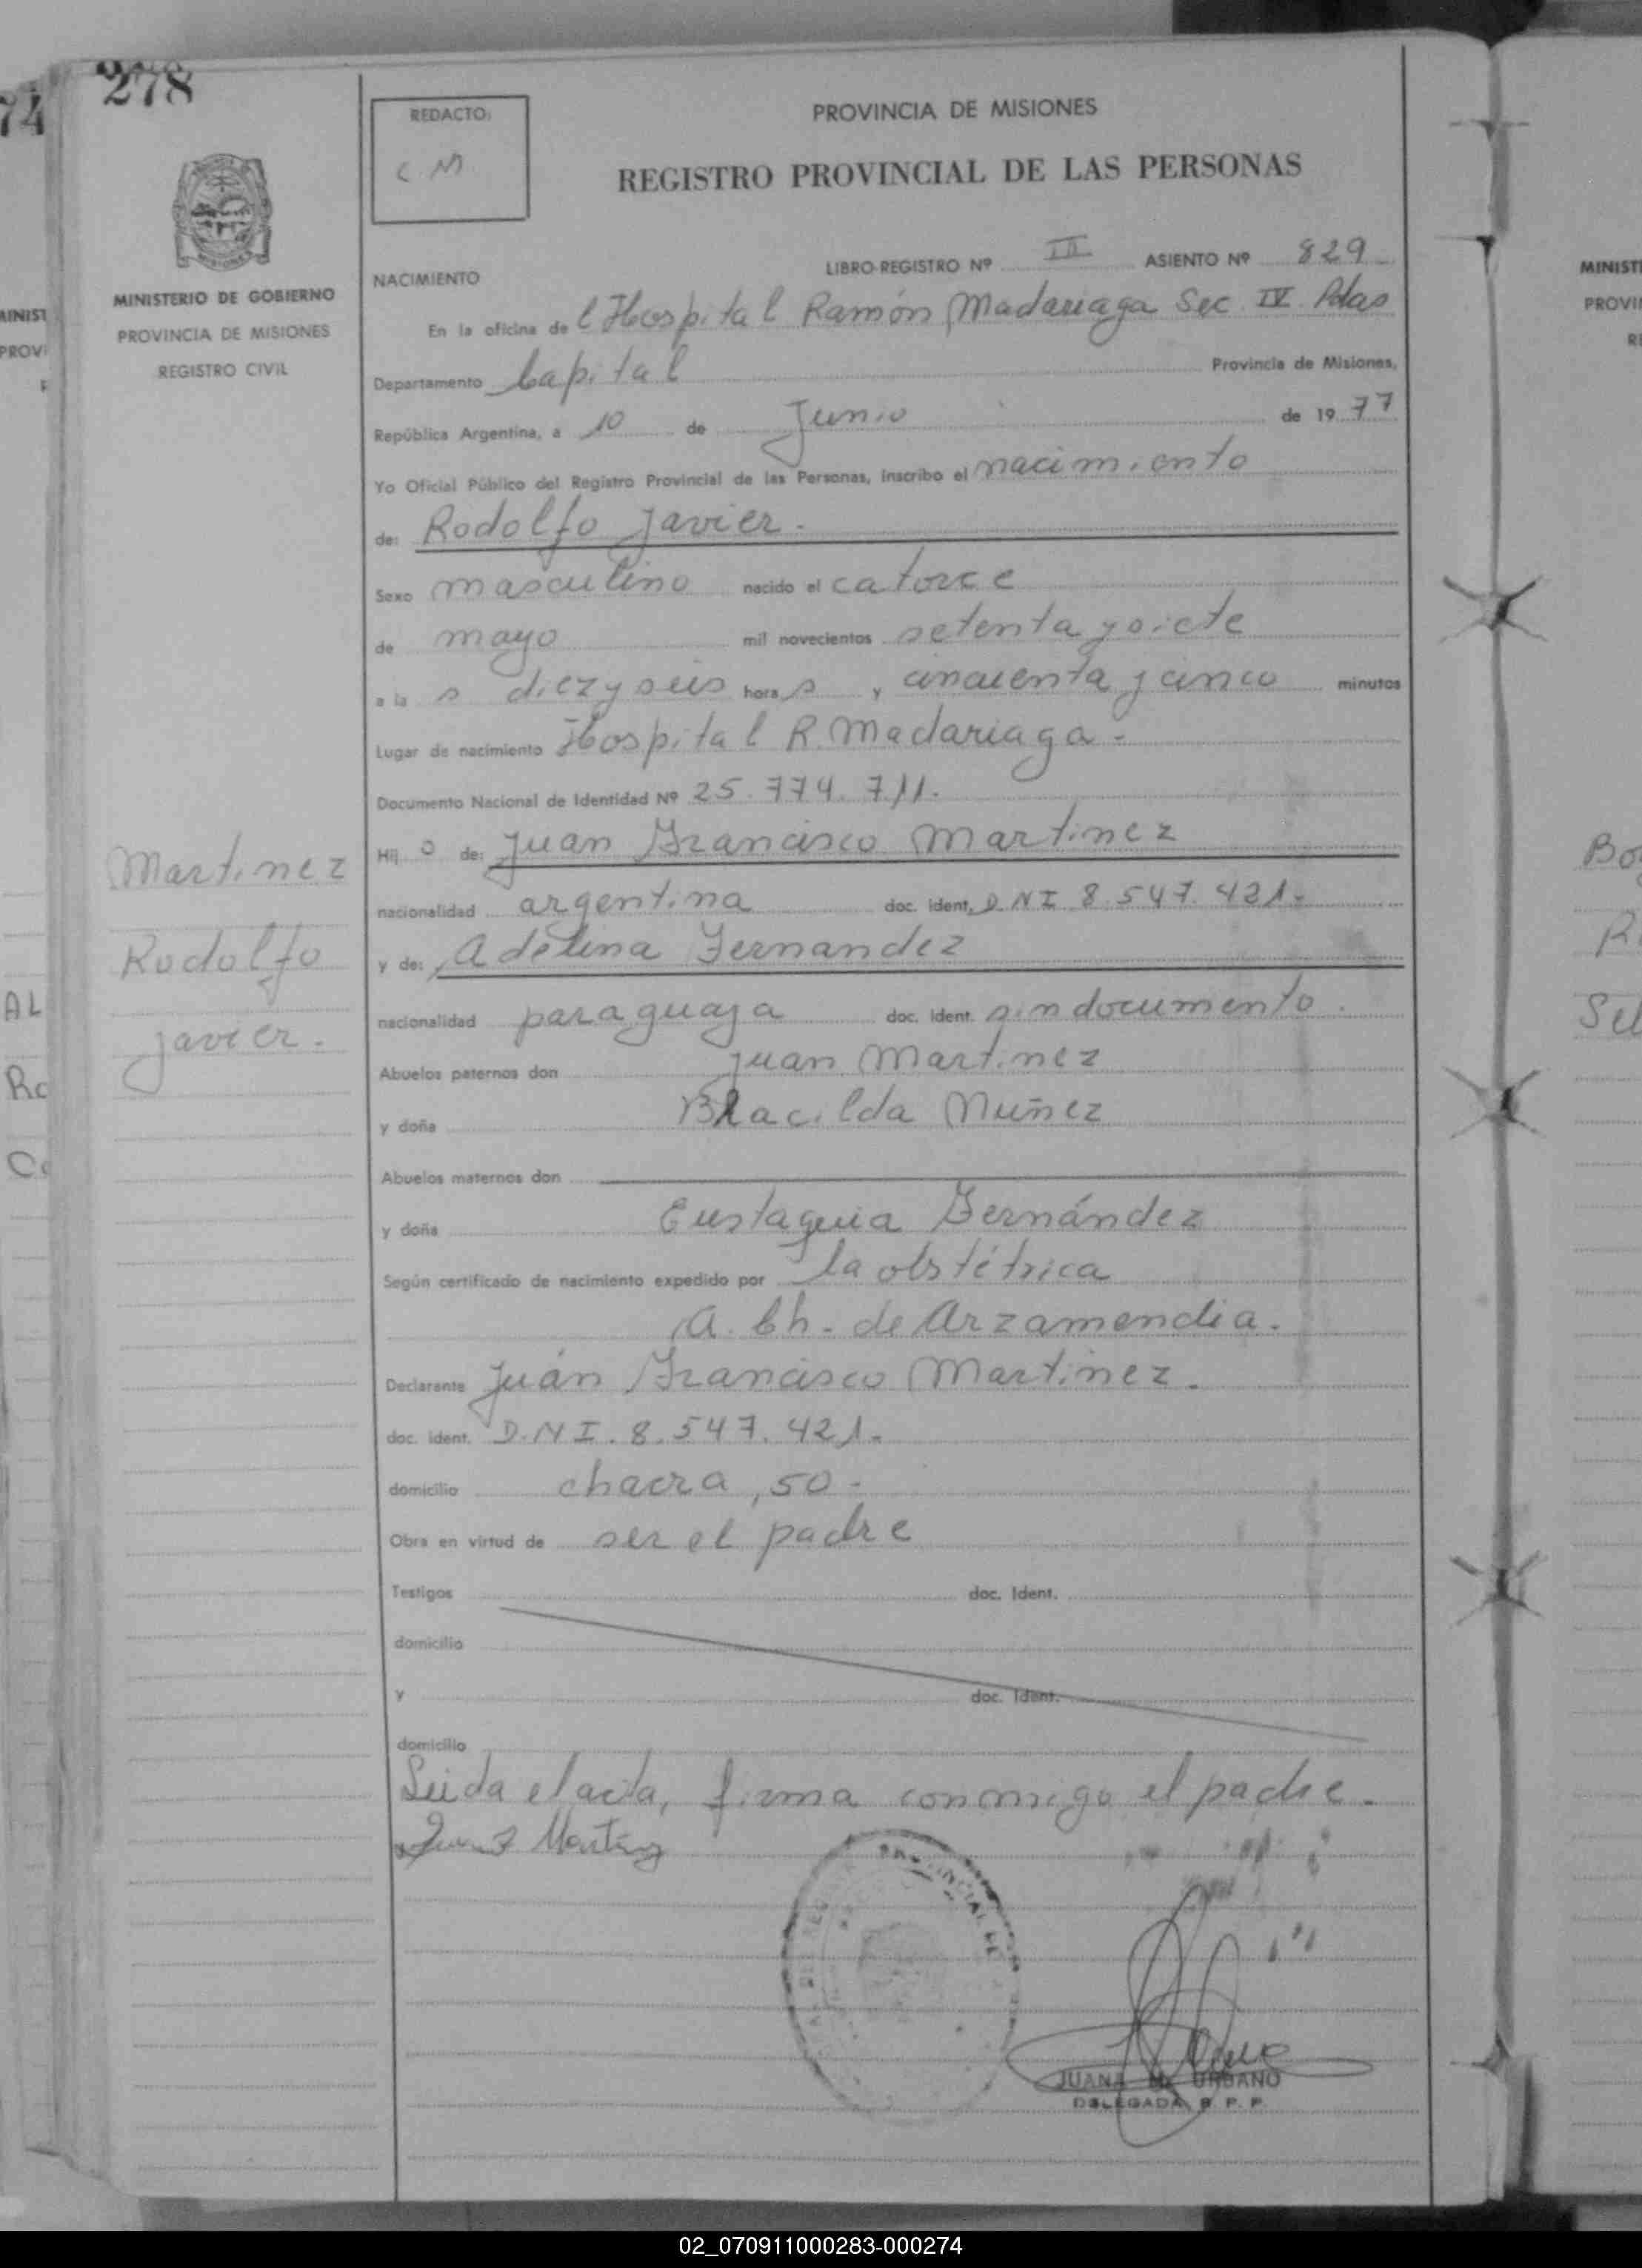 278
74
REDACTO:
C M
PROVINCIA DE MISIONES
REGISTRO PROVINCIAL DE LAS PERSONAS
MINISTERIO DE GOBIERNO
PROVINCIA DE MISIONES
REGISTRO CIVIL
LIBRO-REGISTRO Nº III ASIENTO Nº 829
NACIMIENTO
En la oficina de l Hospital Ramón Madariaga Sec IV Pdas
Departamento Capital Provincia de Misiones,
República Argentina, a 10 de Junio de 19 77
Yo Oficial Público del Registro Provincial de las Personas, inscribo el nacimiento
de: Rodolfo Javier.
Sexo masculino nacido el catorce
de mayo mil novecientos setenta y siete
a la s diez y seis hora s y cincuenta y cinco minutos
Lugar de nacimiento Hospital R. Madariaga -
Documento Nacional de Identidad Nº 25.774.711.
Hij o de: Juan Francisco Martinez
nacionalidad argentina doc. ident. D.N.I 8.547.421.-
y de: Adelina Fernandez
nacionalidad paraguaya doc. ident. sin documento.
Abuelos paternos don Juan Martinez
y doña Blacilda Nuñez
Abuelos maternos don
y doña Eustaquia Fernández
Según certificado de nacimiento expedido por la obstétrica
A. Ch. de Arzamendia.
Declarante Juan Francisco Martinez.
doc. ident. D.N.I. 8.547.421.-
domicilio chacra, 50 -
Obra en virtud de ser el padre
Testigos doc. Ident.
domicilio
y doc. Ident.
domicilio
Leida el acta, firma conmigo el padre.
Juan F Martinez
Martinez
Rodolfo
Javier.
JUANA M. URBANO
DELEGADA R. P. P.
02_070911000283-000274